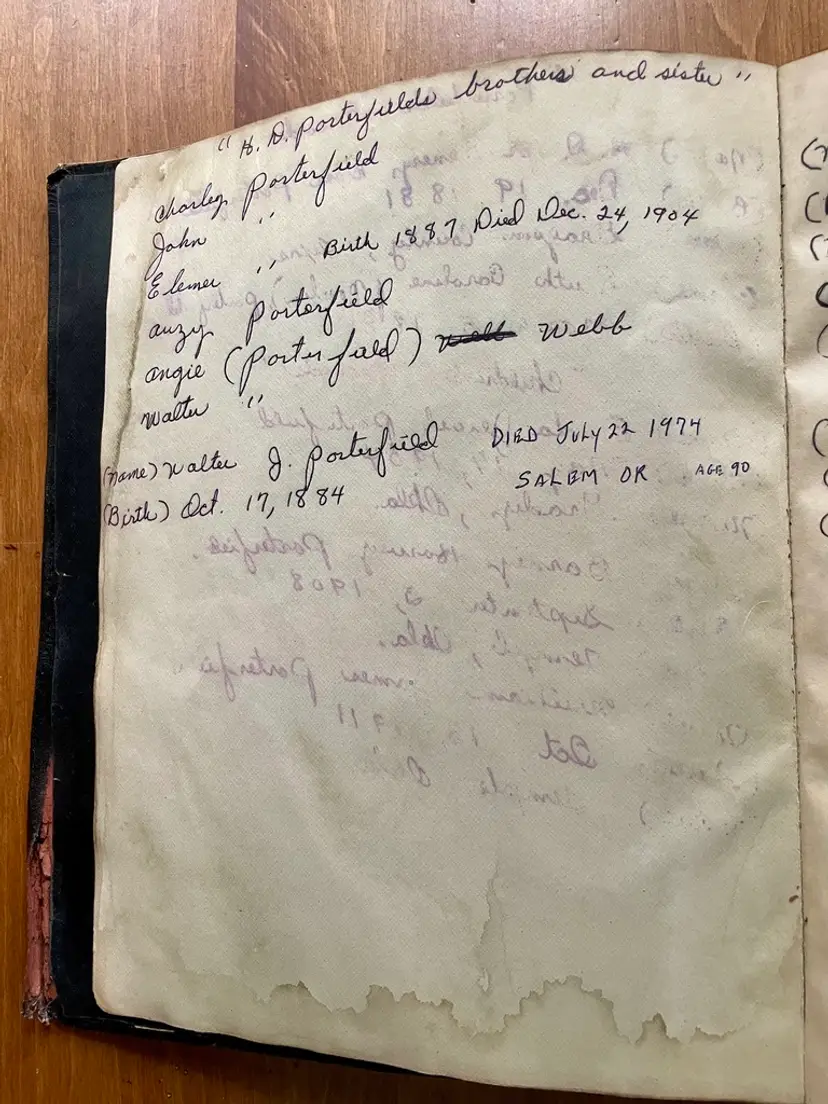 "H. D. Porterfields brothers and sister"
Charley Porterfield
John "
Elemer " Birth 1887 Died Dec. 24, 1904
auzy Porterfield
angie (Porterfield) Webb
Walter "
(Name) Walter J. Porterfield DIED JULY 22 1974
(Birth) Oct. 17, 1884 SALEM OR AGE 90